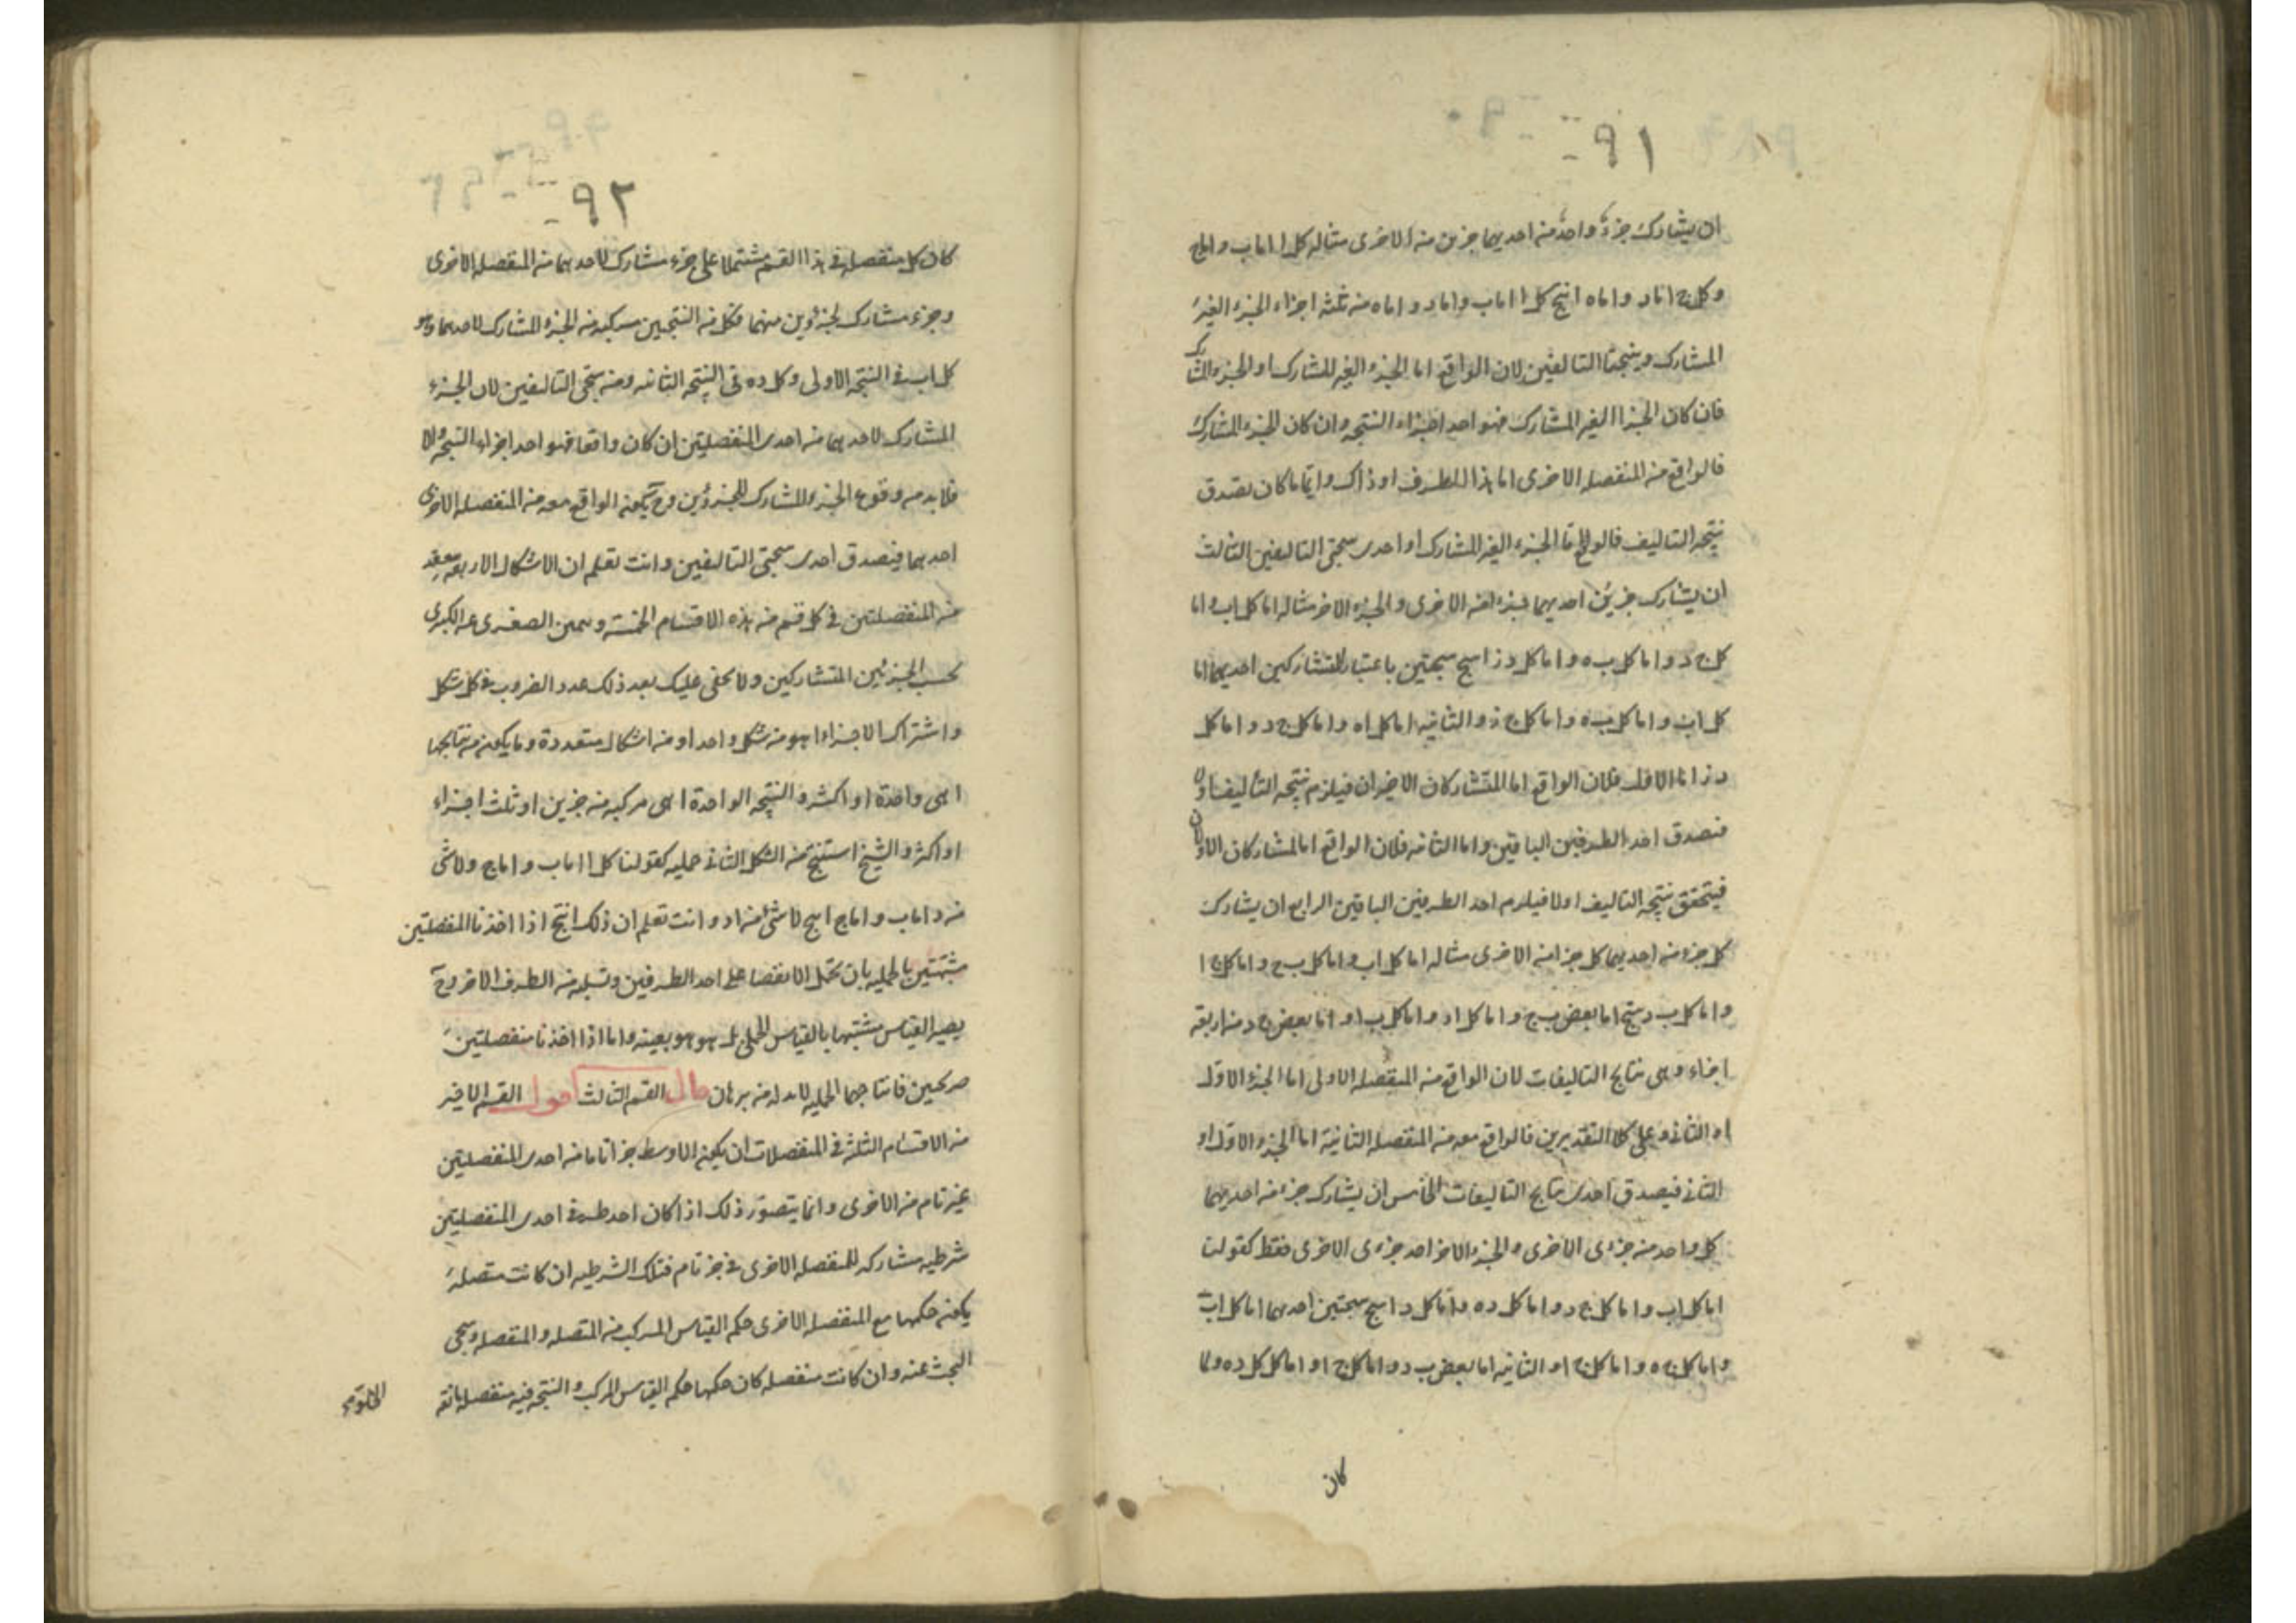 ٩١
ان يشارك جزء واحد من احديهما جزئين من الاخرى مثاله كل ا اما ب واما ج
وكل ج اما د واما ه انتج كل ا اما ب واما د واما ه من ثلثة اجزاء الجزء الغير
المشارك ونتيجتا التاليفين لان الواقع اما الجزء الغير المشارك او الجزء المشارك
فان كان الجزء الغير المشارك فهو احد اجزاء النتيجه وان كان الجزء المشارك
فالواقع من المنفصله الاخرى اما هذا الطرف او ذاك وايّا ما كان يصدق
نتيجه التاليف فالواقع اما الجزء الغير المشارك او احدى نتيجتى التاليفين الثالث
ان يشارك جزئين احديهما جزءا من الاخرى والجزء الاخر مثاله اما كل اب واما
كل ج د واما كل ب ه واما كل د ز انتج نتيجتين باعتبار المتشاركين احديهما اما
كل اب واما كل ب ه واما كل ج ز والثانيه اما كل اه واما كل ج د واما كل
د ز اما الاول فلان الواقع اما المتشاركان الاخيران فيلزم نتيجه التاليف اولا
فيصدق احد الطرفين الباقيين واما الثانيه فلان الواقع اما المتشاركان الاولان
فيتحقق نتيجه التاليف اولا فيلزم احد الطرفين الباقيين الرابع ان يشارك
كل جزء من احديهما كل جزء من الاخرى مثاله اما كل اب واما كل ب ج واما كل ج ا
واما كل ب د ينتج اما بعض ب ج واما كل اد واما كل ب ا واما بعض ج د من اربعة
اجزاء وهى نتايج التاليفات لان الواقع من المنفصله الاولى اما الجزء الاول
او الثانى وعلى كلا التقديرين فالواقع معه من المنفصله الثانية اما الجزء الاول او
الثانى فيصدق احدى نتايج التاليفات الخامس ان يشارك جزء من احديهما
كل واحد من جزءى الاخرى والجزء الاخر احد جزءى الاخرى فقط كقولنا
اما كل اب واما كل ج د واما كل د ه واما كل د ا ينتج نتيجتين احديهما اما كل اب
واما كل ج ه واما كل ج ا والثانيه اما بعض ب د واما كل ج ا واما كل كل د ه ولما
كان
٩٢
كان كل منفصله فى هذا القسم مشتملا على جزء مشارك لاحدهما من المنفصله الاخرى
وجزء مشارك لجزئين منهما فكل من النتيجتين مركبه من الجزء المشارك لاحدهما وهو
كل اب فى النتيجه الاولى وكل د ه فى النتيجه الثانيه ومن نتيجتى التاليفين لان الجزء
المشارك لاحدهما من احدى المنفصلتين ان كان واقعا فهو احد اجزاء النتيجه والا
فلا بد من وقوع الجزء المشارك للجزئين وح يكون الواقع معه من المنفصله الاخرى
احدهما فيصدق احدى نتيجتى التاليفين وانت تعلم ان الاشكال الاربعه ينعقد
من المنفصلتين فى كل قسم من هذه الاقسام الخمسة ويتميز الصغرى عن الكبرى
بحسب الجزئين المتشاركين ولا يخفى عليك بعد ذلك عدد الضروب فى كل شكل
واشتراك الاجزاء اهو من شكل واحد او من اشكال متعددة وما يكون من نتايجها
اهى واحدة او اكثر والنتيجه الواحدة اهى مركبه من جزئين او ثلث اجزاء
او اكثر والشيخ استنتج من الشكل الثانى حمليه كقولنا كل ا اما ب واما ج ولا شى
من د اما ب واما ج انتج لا شى من ا د وانت تعلم ان ذلك انتج اذا اخذنا المنفصلتين
مشبهتين بالحمليه بان تحمل الانفصا على احد الطرفين وتسلبه من الطرف الاخر وح
يصير القياس مشبها بالقياس الحملى بل هو هو بعينه واما اذا اخذنا منفصلتين
صريحين فانتاجهما الحمليه لا بد له من برهان قال القسم الثالث اقول القسم الاخير
من الاقسام الثلثه فى المنفصلات ان يكون الاوسط جزءا تاما من احدى المنفصلتين
غير تام من الاخرى وانما يتصوّر ذلك اذا كان احد طرفى احدى المنفصلتين
شرطيه مشاركه للمنفصله الاخرى فى جزء تام فتلك الشرطيه ان كانت متصلة
يكون حكمها مع المنفصله الاخرى حكم القياس المركب من المتصله والمنفصله وسيجى
البحث عنه وان كانت منفصله كان حكمها حكم القياس المركب والنتيجه فيه منفصله مانعه
الخلو من